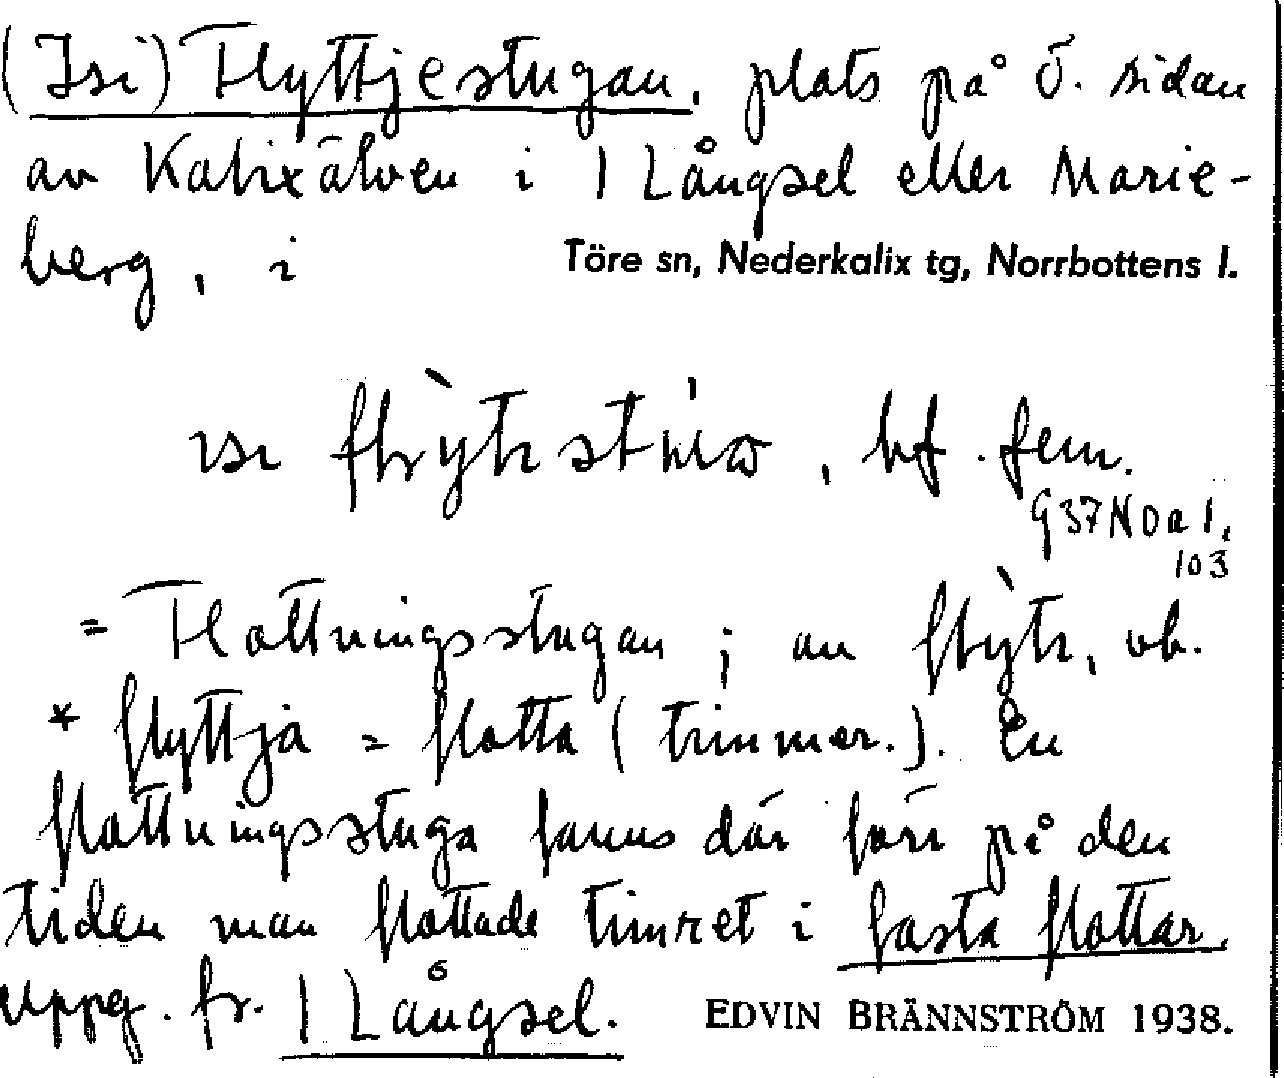 (Isi) Flyttjestugan, plats på ö. sidan
av Kalixälven i 1 Långsel eller Marie-
berg, i Töre sn, Nederkalix tg, Norrbottens l.
bf. fem.
G37N0a1,
103
= Flottningsstugan; av vb.
* flyttja = flotta (timmer.). En
flottningsstuga fanns där förr på den
tiden man flottade timret i fasta flottar.
Uppg. fr. 1 Långsel. EDVIN BRÄNNSTRÖM 1938.